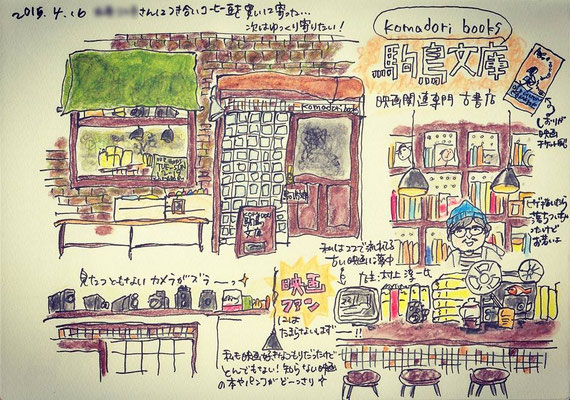 2015.4.16 さんにつき合いコーヒー豆を買いに寄った…
次はゆっくり寄りたい！
komadori books
駒鳥文庫
映画関連専門 古書店
komadori bo
駒鳥文庫
しおりが
映画
チケット風
私はココで流れてる
古い映画に夢中
店主 村上淳一氏
見たこともないカメラがズラーっ
映画
ファン
には
たまらないはずー！！
私も映画好きなつもりだったけど
とんでもない！知らない映画
の本やパンフがどーっさり